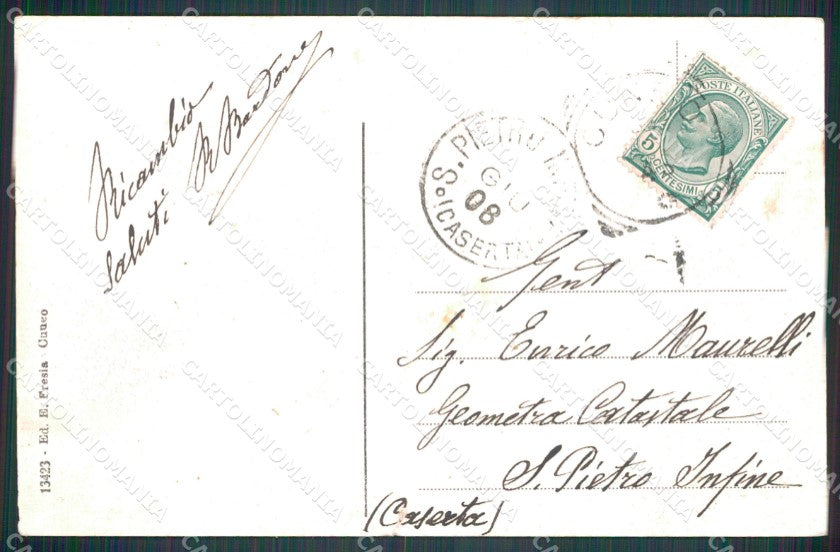 Ricambio
saluti
R Bardone
13423 - Ed. E. Fresia - Cuneo
S. PIETRO
GIU
08
(CASERTA
POSTE ITALIANE
5
CENTESIMI
Gent
Sig. Enrico Maurelli
Geometra Catastale
S. Pietro Infine
(Caserta)
CARTOLINOMANIA